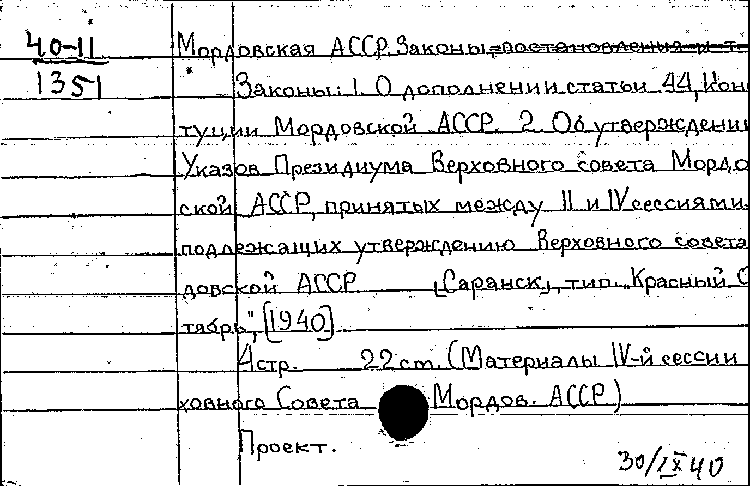 40-11
1351
Мордовская АССР. Законы, постановления и т
Законы: 1. О дополнении статьи 44, Кон
туции Мордовской АССР. 2. Об утверждени
Указов Президиума Верховного совета Мордо
ской АССР, принятых между II и IV сессиями.
подлежащих утверждению Верховного совета
довской АССР [Саранск], тип. „Красный О
тябрь", [1940]
4 стр. 22 ст. (Материалы IV-й сессии
ховного Совета Мордов. АССР)
Проект.
30/IX 40